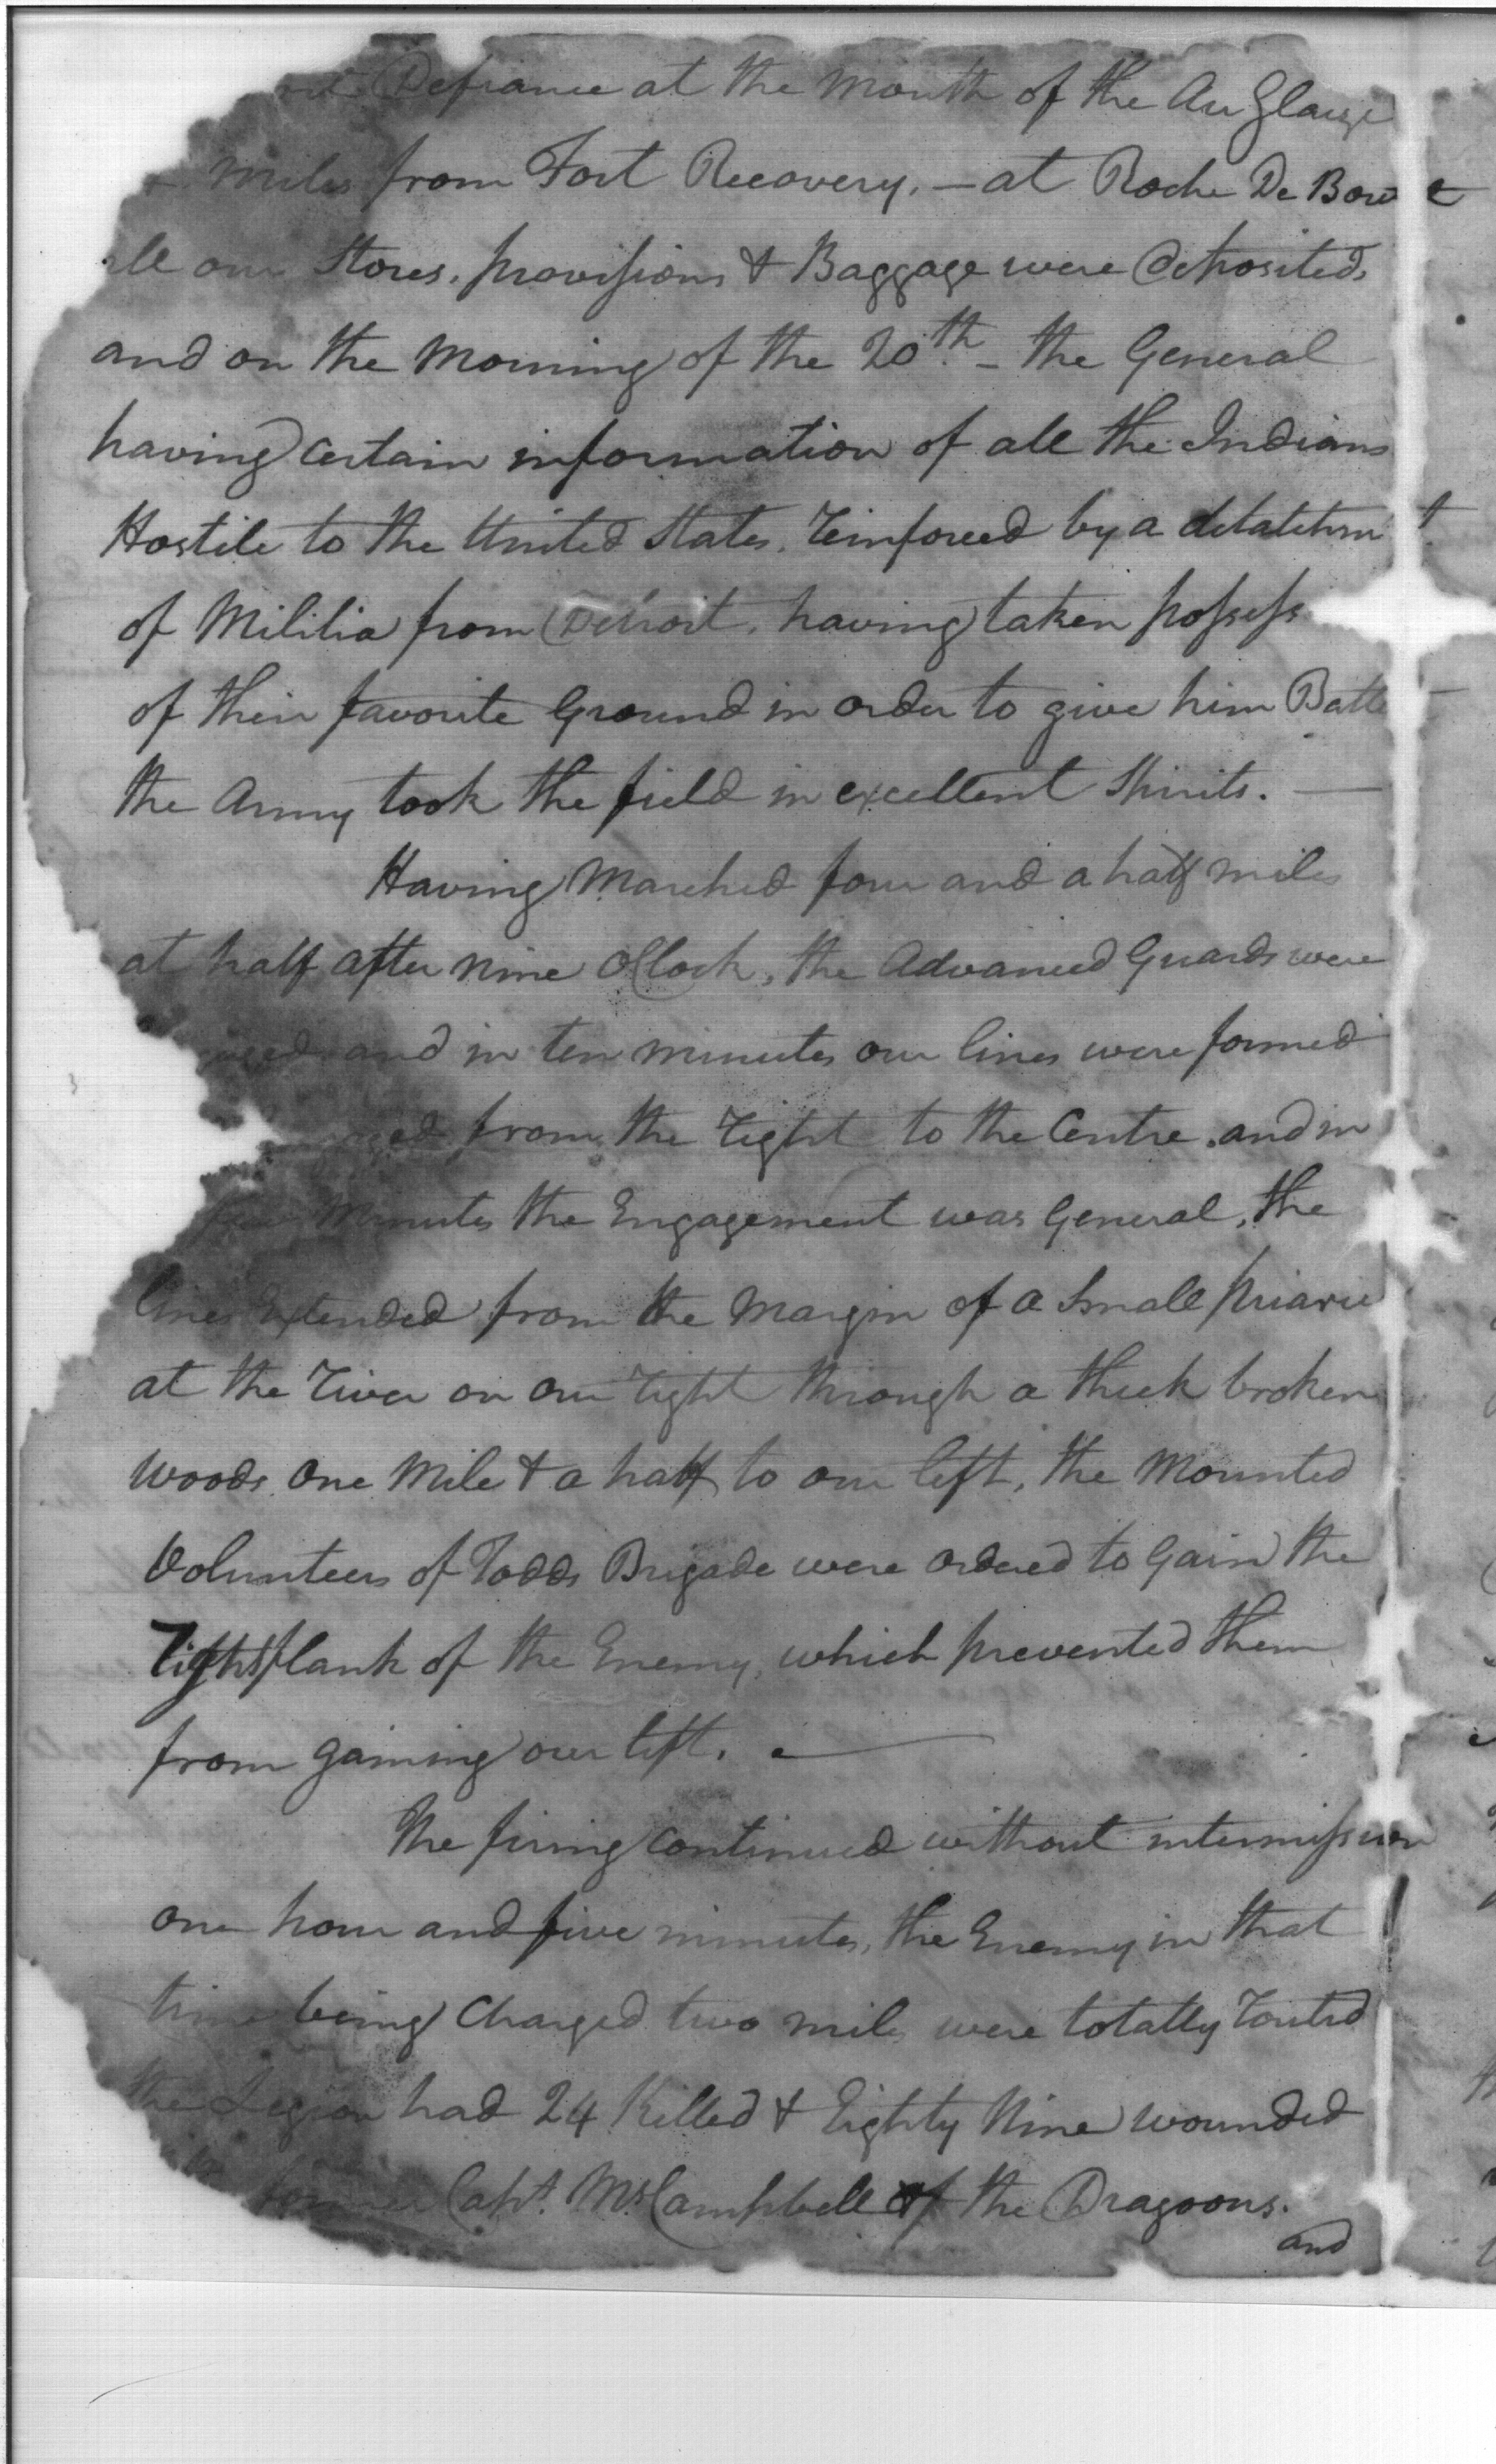 Defiance at the Mouth of the Au Glaize
Miles from Fort Recovery. — at Roche De Bout
all our Stores, provisions & Baggage were Deposited,
and on the Morning of the 20th. – the General
having certain information of all the Indians
Hostile to the United States, reinforced by a detatchm t
of Militia from Detroit, having taken possess
of their favorite Ground in order to give him Battle
the Army took the field in excellent Spirits. —
Having Marched four and a half miles
at half after nine OClock, the Advanced Guards were
and in ten minutes our lines were formed
from the right to the Centre, and in
few Minutes the Engagement was General, the
lines Extended from the Margin of a Small priarie
at the river on our right through a thick broken
woods one Mile & a half to our left, the Mounted
Volunteers of Todds Brigade were ordered to Gain the
right flank of the Enemy, which prevented them
from gaining our left. —
The firing continued without intermission
one hour and five minutes, the Enemy in that
time being Charged two miles were totally routed
the Legion had 24 Killed & Eighty Nine wounded
former Capt. Ms Campbell of the Dragoons.
and